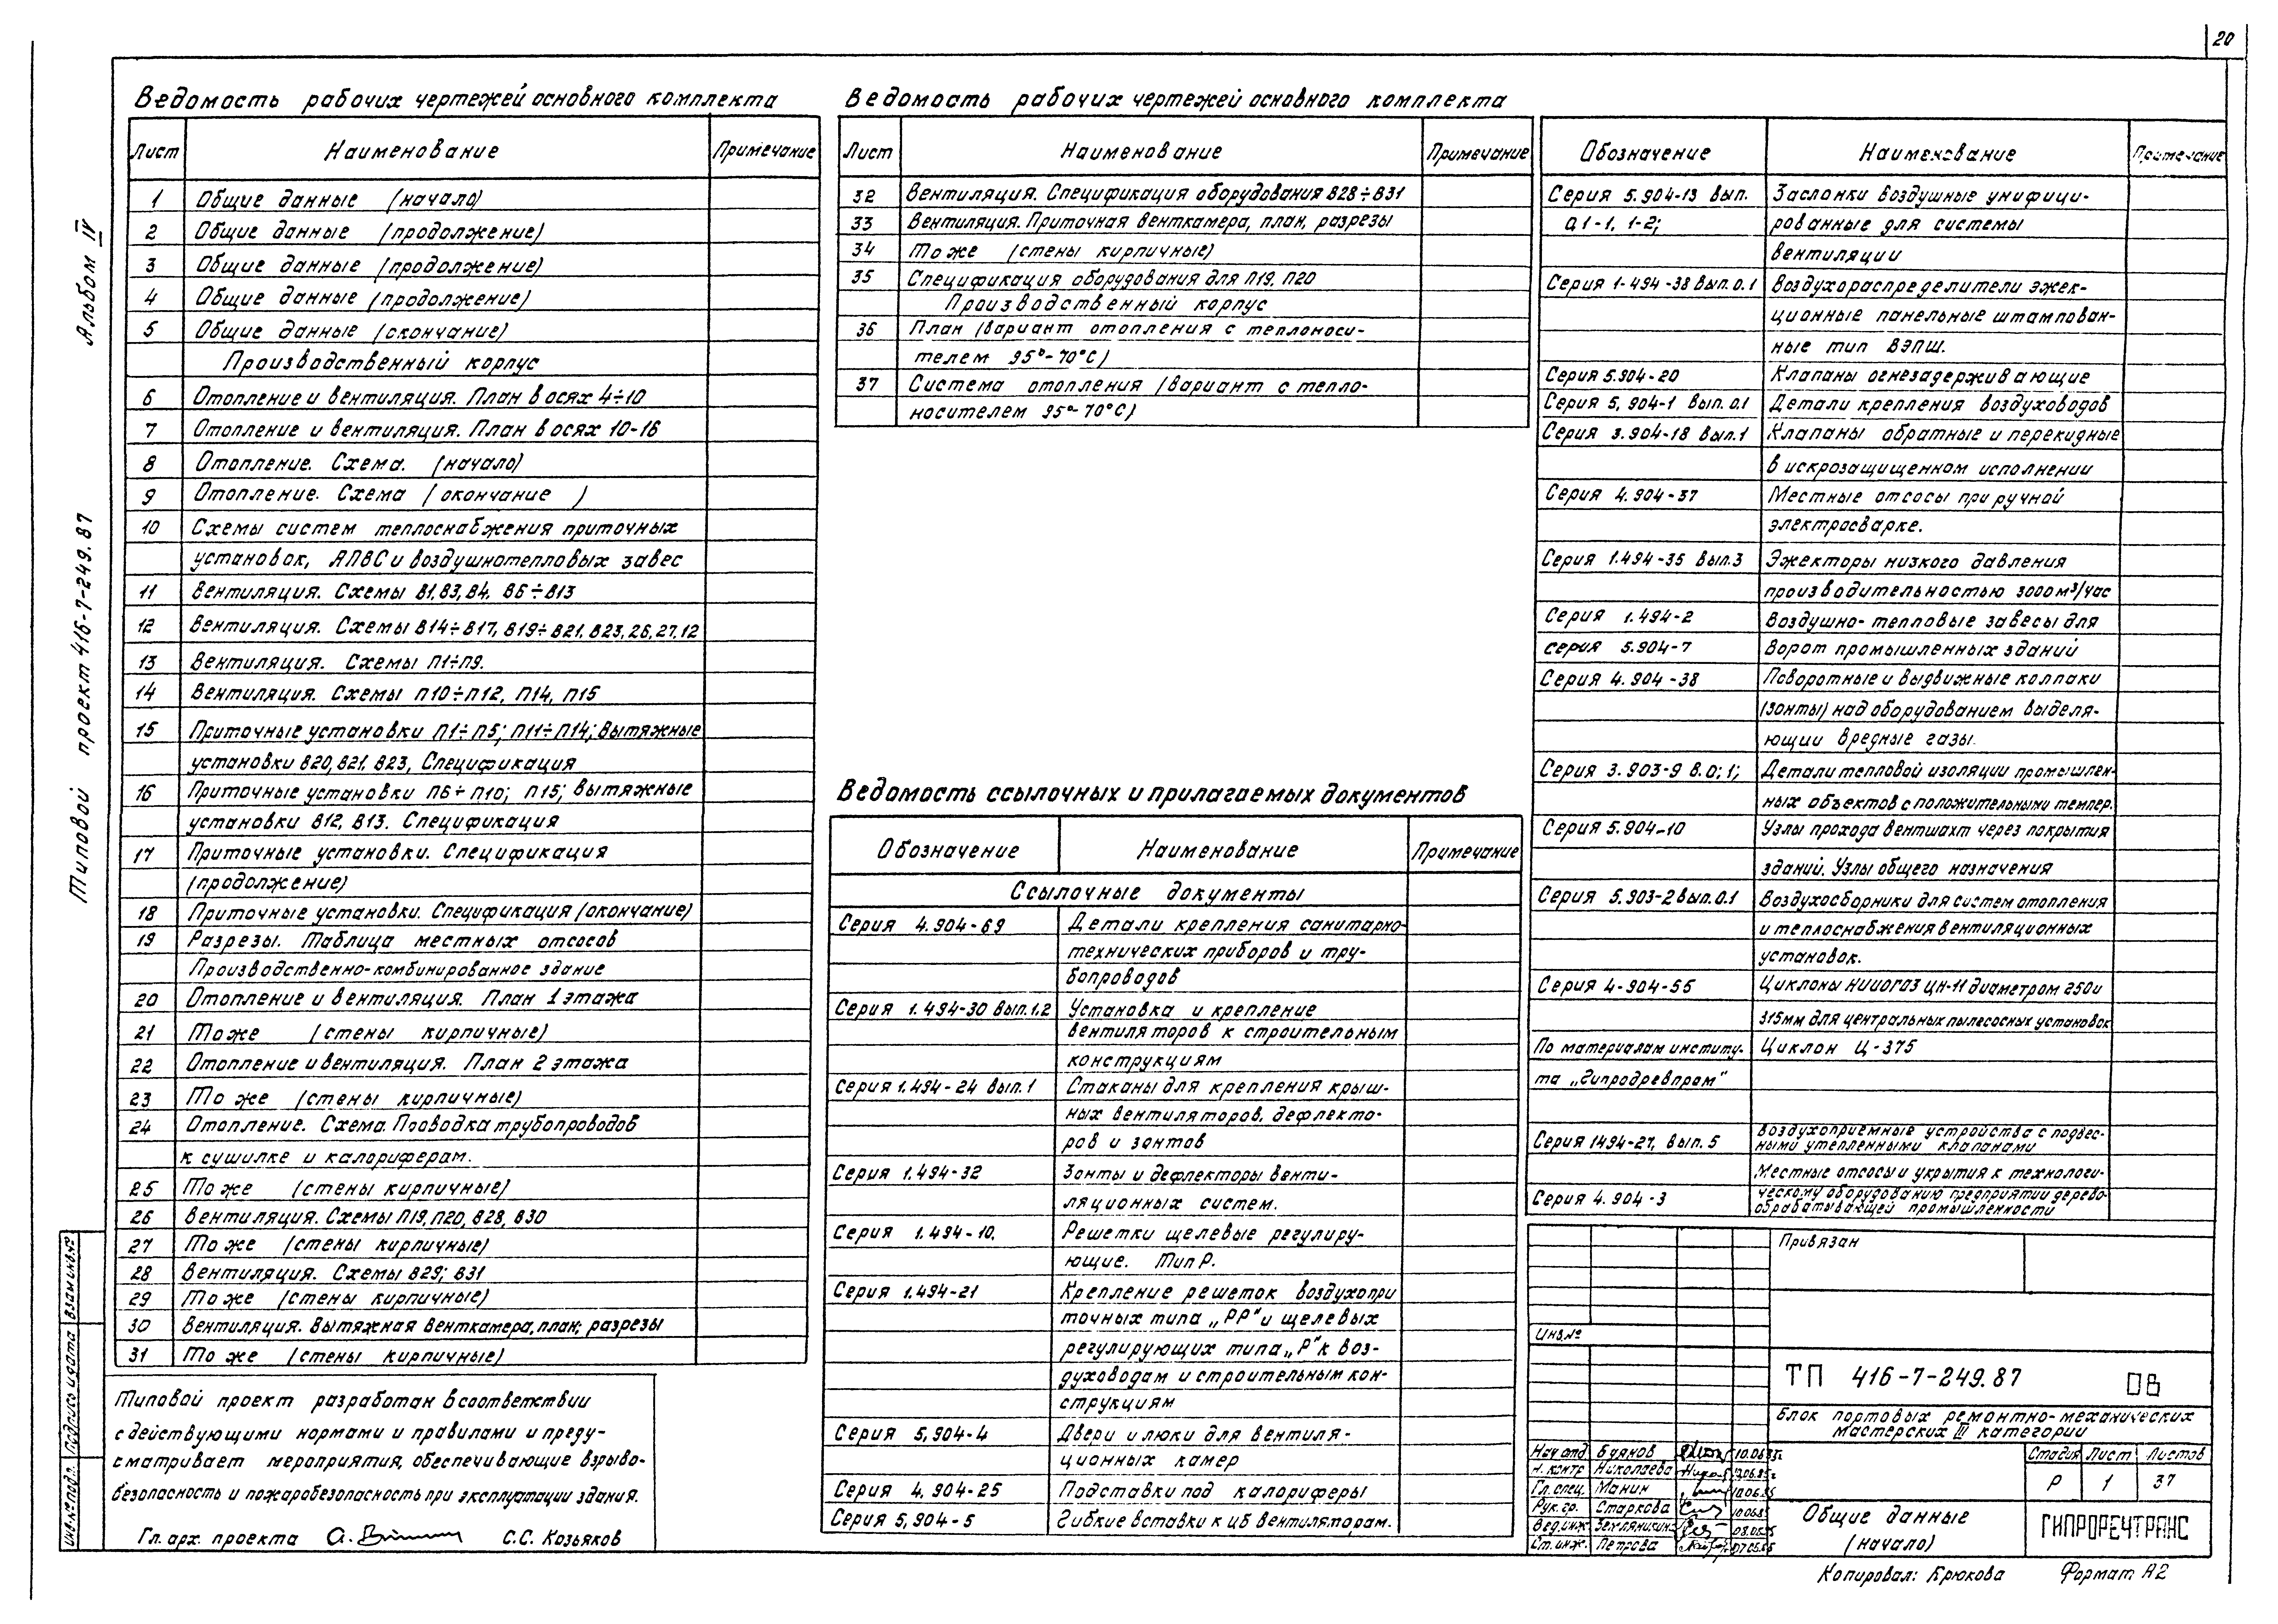 20
Альбом IV
Типовой проект 416-7-249.87
Ведомость рабочих чертежей основного комплекта
Лист Наименование Примечание
1 Общие данные (начало)
2 Общие данные (продолжение)
3 Общие данные (продолжение)
4 Общие данные (продолжение)
5 Общие данные (окончание)
Производственный корпус
6 Отопление и вентиляция. План в осях 4÷10
7 Отопление и вентиляция. План в осях 10-16
8 Отопление. Схема. (начало)
9 Отопление. Схема (окончание )
10 Схемы систем теплоснабжения приточных
установок, АПВС и воздушнотепловых завес
11 Вентиляция. Схемы В1,В3,В4, В6÷В13
12 Вентиляция. Схемы В14÷В17, В19÷В21, В23, 26, 27, 12
13 Вентиляция. Схемы П1÷П9.
14 Вентиляция. Схемы П10÷П12, П14, П15
15 Приточные установки П1÷П5; П11÷П14; Вытяжные
установки В20, В21, В23, Спецификация
16 Приточные установки П6÷П10; П15; Вытяжные
установки В12, В13. Спецификация
17 Приточные установки. Спецификация
(продолжение)
18 Приточные установки. Спецификация (окончание)
19 Разрезы. Таблица местных отсосов
Производственно-комбинированное здание
20 Отопление и вентиляция. План 1 этажа
21 То же (стены кирпичные)
22 Отопление и вентиляция. План 2 этажа
23 То же (стены кирпичные)
24 Отопление. Схема. Проводка трубопроводов
к сушилке и калориферам.
25 То же (стены кирпичные)
26 Вентиляция. Схемы П19, П20, В28, В30
27 То же (стены кирпичные)
28 Вентиляция. Схемы В29; В31
29 То же (стены кирпичные)
30 Вентиляция. Вытяжная венткамера, план; разрезы
31 То же (стены кирпичные)
Типовой проект разработан в соответствии
с действующими нормами и правилами и преду-
сматривает мероприятия, обеспечивающие взрыво-
безопасность и пожаробезопасность при эксплуатации здания.
Гл. арх. проекта С.С. Козьяков
Ведомость рабочих чертежей основного комплекта
Лист Наименование Примечание
32 Вентиляция. Спецификация оборудования В28÷В31
33 Вентиляция. Приточная венткамера, план, разрезы
34 То же (стены кирпичные)
35 Спецификация оборудования для П19, П20
Производственный корпус
36 План (вариант отопления с теплоноси-
телем 95°-70°С)
37 Система отопления (вариант с тепло-
носителем 95°-70°С)
Ведомость ссылочных и прилагаемых документов
Обозначение Наименование Примечание
Ссылочные документы
Серия 4.904-69 Детали крепления санитарно-
технических приборов и тру-
бопроводов
Серия 1.494-30 вып.1,2 Установка и крепление
вентиляторов к строительным
конструкциям
Серия 1.494-24 вып.1 Стаканы для крепления крыш-
ных вентиляторов, дефлекто-
ров и зонтов
Серия 1.494-32 Зонты и дефлекторы венти-
ляционных систем.
Серия 1.494-10. Решетки щелевые регулиру-
ющие. Тип Р.
Серия 1.494-21 Крепление решеток воздухопри
точных типа „РР" и щелевых
регулирующих типа „Р" к воз-
духоводам и строительным кон-
струкциям
Серия 5.904-4 Двери и люки для вентиля-
ционных камер
Серия 4.904-25 Подставки под калориферы
Серия 5.904-5 Гибкие вставки к ЦБ вентиляторам.
Обозначение Наименование Примечание
Серия 5.904-13 вып. Заслонки воздушные унифици-
0,1-1, 1-2; рованные для системы
вентиляции
Серия 1-494-38 вып.0.1 Воздухораспределители эжек-
ционные панельные штампован-
ные тип ВЭПШ.
Серия 5.904-20 Клапаны огнезадерживающие
Серия 5.904-1 вып.0.1 Детали крепления воздуховодов
Серия 3.904-18 вып.1 Клапаны обратные и перекидные
в искрозащищенном исполнении
Серия 4.904-37 Местные отсосы при ручной
электросварке.
Серия 1.494-35 вып.3 Эжекторы низкого давления
производительностью 3000 м³/час
Серия 1.494-2 Воздушно-тепловые завесы для
серия 5.904-7 Ворот промышленных зданий
Серия 4.904-38 Поворотные и выдвижные колпаки
(зонты) над оборудованием выделя-
ющии вредные газы.
Серия 3.903-9 в.0; 1; Детали тепловой изоляции промышлен-
ных объектов с положительными темпер.
Серия 5.904-10 Узлы прохода вентшахт через покрытия
зданий. Узлы общего назначения
Серия 5.903-2 вып.0.1 Воздухосборники для систем отопления
и теплоснабжения вентиляционных
установок.
Серия 4-904-55 Циклоны НИИОГАЗ ЦН-11 диаметром 250 и
315мм для центральных пылесосных установок
По материалам институ- Циклон Ц-375
та „Гипродревпром"
Серия 1494-27, вып.5 Воздухоприемные устройства с подвес-
ными утепленными клапанами
Местные отсосы и укрытия к технологи-
Серия 4.904-3 ческому оборудованию предприятии дерево-
обрабатывающей промышленности
Привязан
Инв.№
ТП 416-7-249.87 ОВ
Блок портовых ремонтно-механических
мастерских III категории
Нач отд Буянов
Н. контр Николаева
Гл. спец. Манин
Рук. гр. Старкова
Вед.инж
Ст. инж. Петрова
Стадия Лист Листов
Р 1 37
Общие данные
(начало)
ГИПРОРЕЧТРАНС
Копировал: Крюкова Формат А2
Инв.№ подл. Подпись и дата Взам инв.№